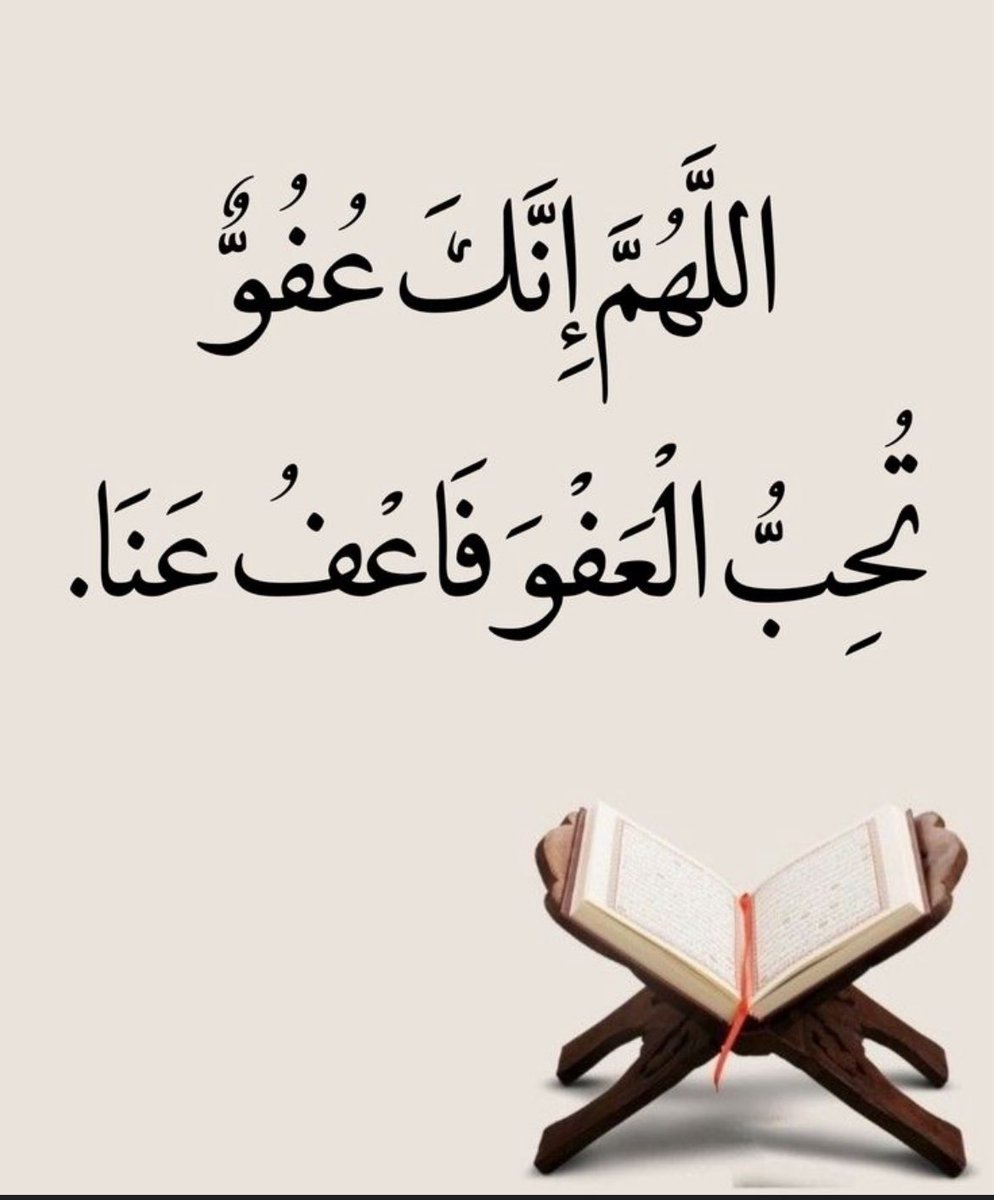 اللَّهُمَّ إِنَّكَ عُفُوٌّ
تُحِبُّ الْعَفْوَ فَاعْفُ عَنَا.